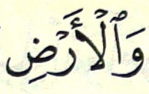 وَٱلۡأَرۡضِ